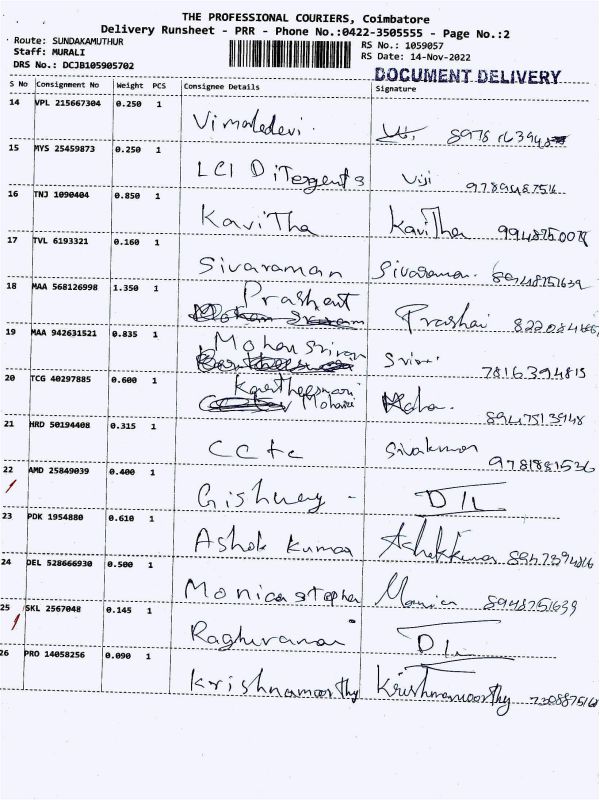 THE PROFESSIONAL COURIERS, Coimbatore
Delivery Runsheet - PRR - Phone No.:0422-3505555 - Page No.:2
Route: SUNDAKAMUTHUR
Staff: MURALI
DRS No.: DCJB105905702
RS No.: 1059057
RS Date: 14-Nov-2022
DOCUMENT DELIVERY
S No Consignment No Weight PCS Consignee Details Signature
14 VPL 215667304 0.250 1 Vimaledevi.
15 MYS 25459873 0.250 1 LCI DiTergents Viji
16 TNJ 1090404 0.850 1 KaviTha KaviTha
17 TVL 6193321 0.160 1 Sivaraman Sivaraman.
18 MAA 568126998 1.350 1 Prashant
19 MAA 942631521 0.835 1 Mohan 7816394815
20 TCG 40297885 0.600 1 8947513948
21 HRD 50194408 0.315 1 9781881536
22 AMD 25849039 0.400 1
23 PDK 1954880 0.610 1 Ashok Kumar
24 DEL 528666930 0.500 1 Monica Monica 8948751639
25 SKL 2567048 0.145 1
26 PRO 14058256 0.090 1 Krishnamoorthy Krishnamoorthy